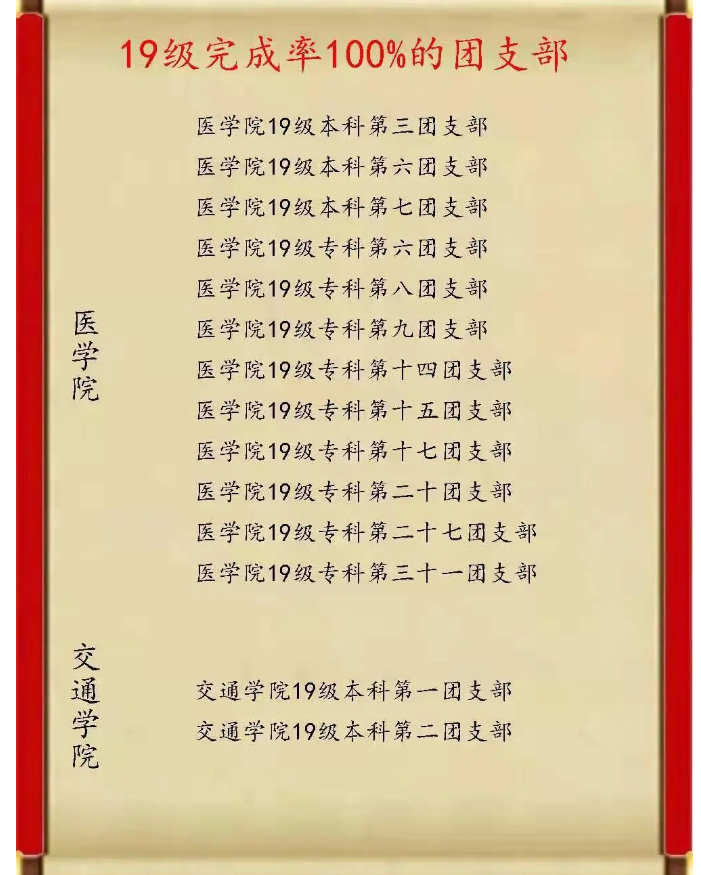 19级完成率100%的团支部
医学院
医学院19级本科第三团支部
医学院19级本科第六团支部
医学院19级本科第七团支部
医学院19级专科第六团支部
医学院19级专科第八团支部
医学院19级专科第九团支部
医学院19级专科第十四团支部
医学院19级专科第十五团支部
医学院19级专科第十七团支部
医学院19级专科第二十团支部
医学院19级专科第二十七团支部
医学院19级专科第三十一团支部
交通学院
交通学院19级本科第一团支部
交通学院19级本科第二团支部